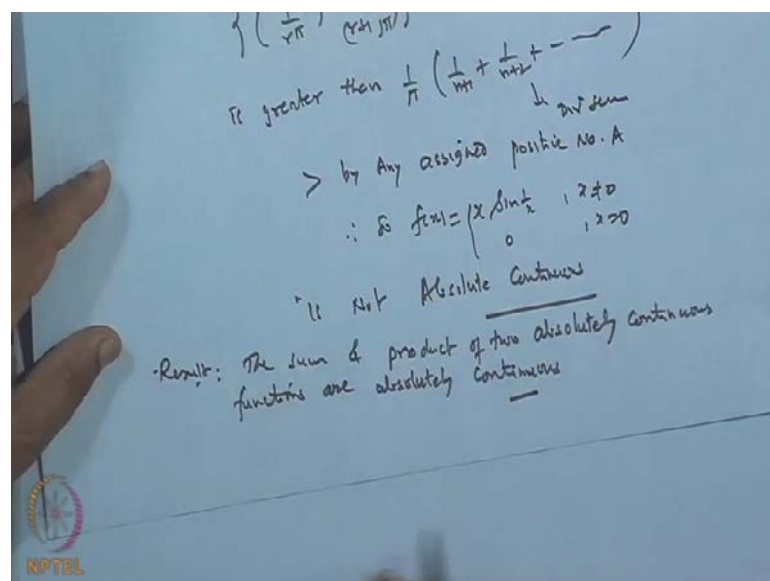 {( 1/rπ , 1/(r+1)π )
is greater than 1/π ( 1/n+1 + 1/n+2 + - —
> by Any assigned positive No. A
∴ So f(x) = { x Sin 1/x , x≠0
0 , x=0
is Not Absolute Continuous
Result: The sum & product of two absolutely continuous
functions are absolutely continuous
NPTEL